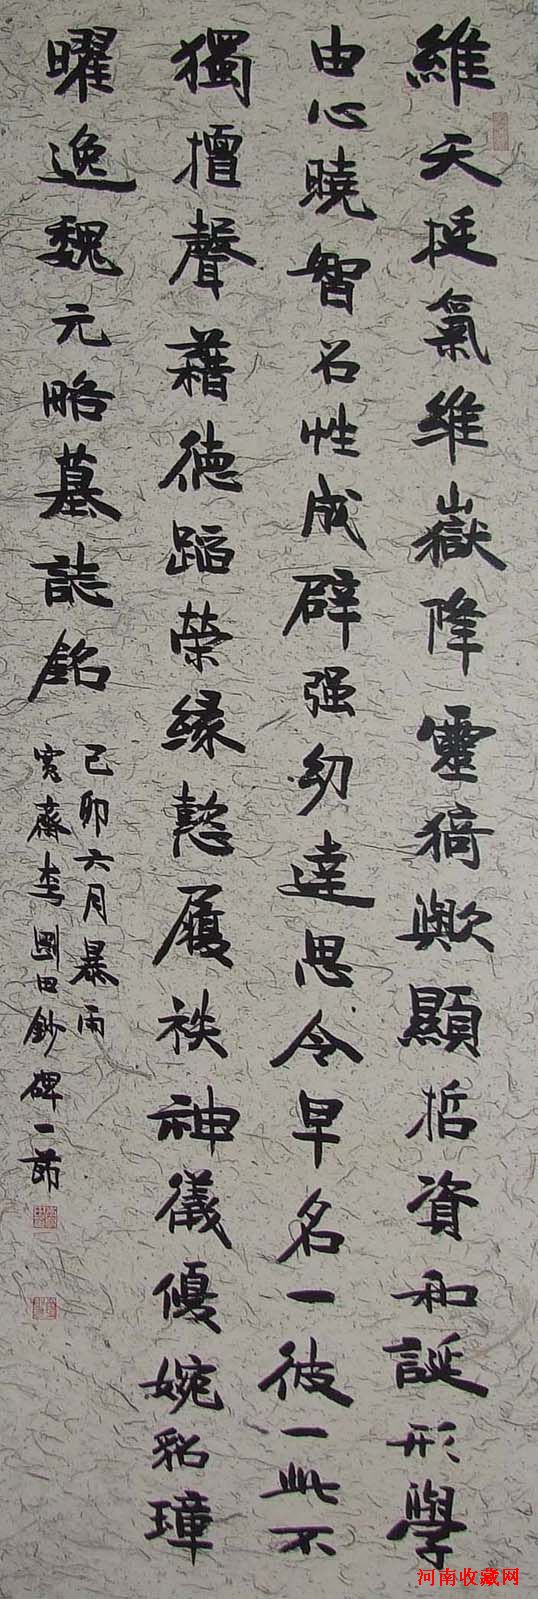 維天挺氣維嶽降靈猗歟顯哲資和誕形學
由心曉智名性成辟强幼達思令早名一彼一此不
獨擅聲藉德蹈榮緣懃履袟神儀優婉貂璋
曜逸魏元略墓誌銘
己卯六月暴雨
寬齋李剛田鈔碑一節
河南收藏网